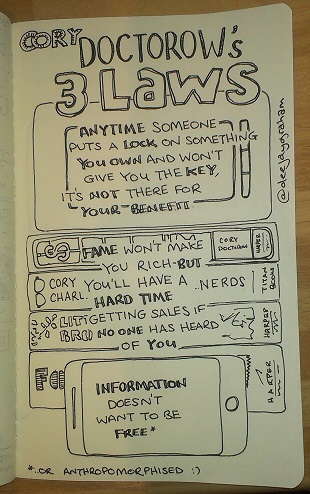 CORY
DOCTOROW's
3 LAWS
ANYTIME SOMEONE
PUTS A LOCK ON SOMETHING
YOU OWN AND WON'T
GIVE YOU THE KEY,
IT'S NOT THERE FOR
YOUR BENEFIT
@deejaygraham
FAME WON'T MAKE
YOU RICH-BUT
YOU'LL HAVE A
HARD TIME
GETTING SALES IF
NO ONE HAS HEARD
OF YOU
CORY
DOCTOROW
HARPER
CORY
CHARL.
..NERDS
TITAN
BOOKS
LIT
BRO
HARPER
HARPER
INFORMATION
DOESN'T
WANT TO BE
FREE*
*..OR ANTHROPOMORPHISED :)